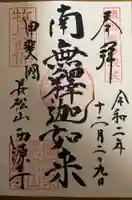 奉拝
令和二年
十二月二十九日
南無釋迦如来
甲斐国
長松山